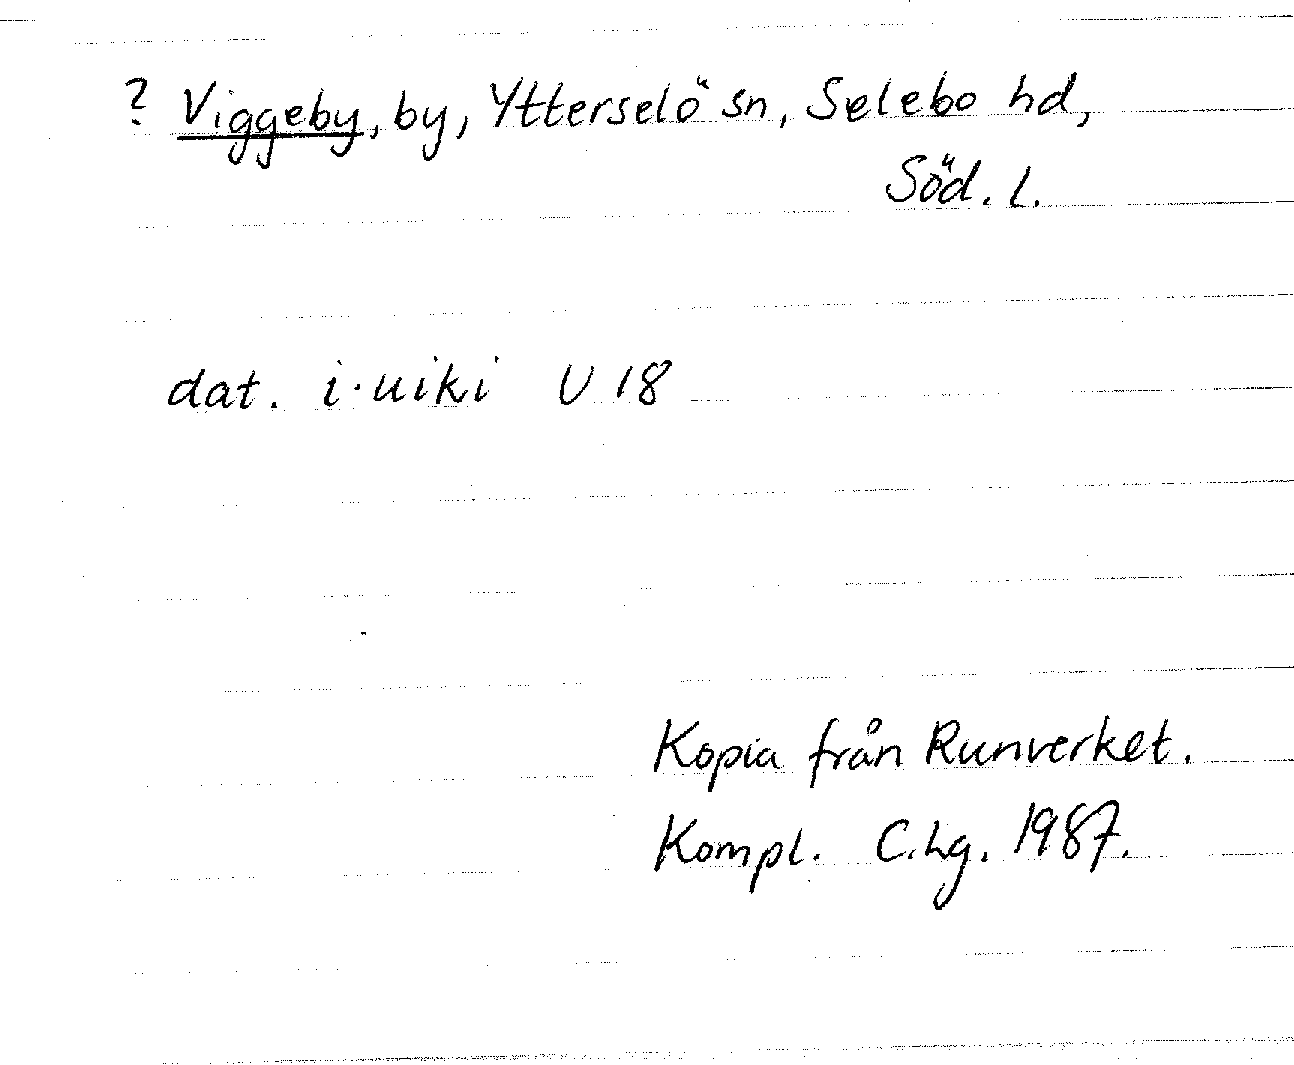 ? Viggeby, by, Ytterselö sn, Selebo hd,
Söd. l.
dat. i·uiki U 18
Kopia från Runverket.
Kompl. C.Lg. 1987.